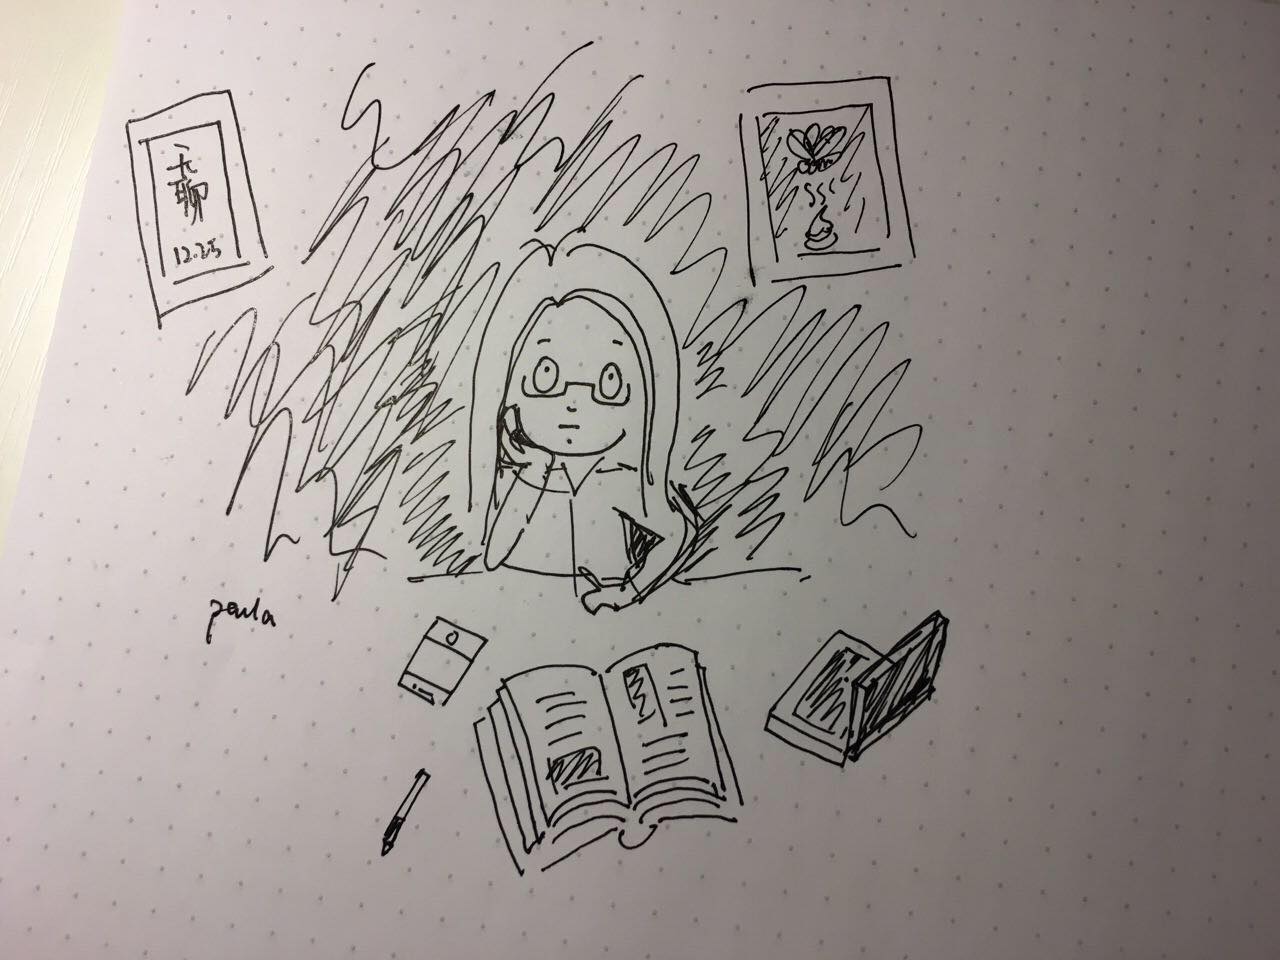 无聊
12.25
paula